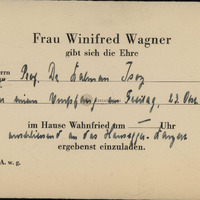 Frau Winifred Wagner
gibt sich die Ehre
Herrn Prof. Dr. Kalman Isoz
zu einem Empfang am Freitag, 23. Okt
im Hause Wahnfried um Uhr
anschliessend an das
ergebenst einzuladen.
A. w. g.